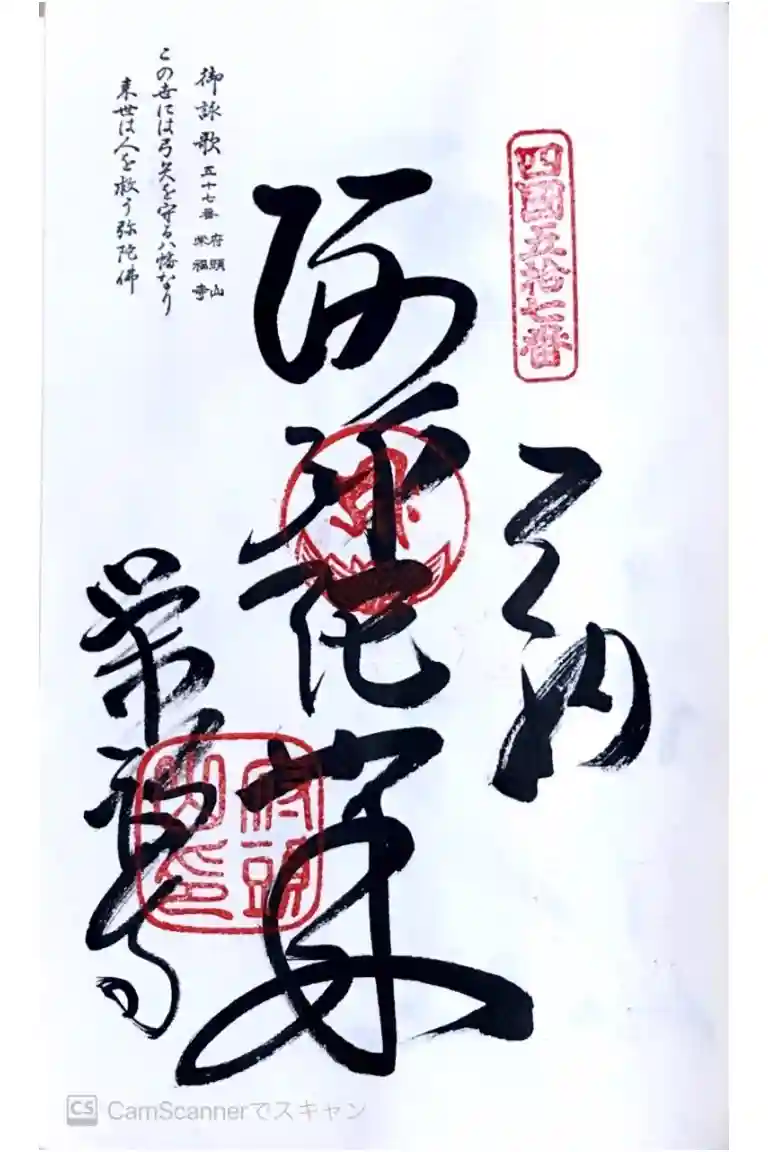 四國五拾七番
奉納
阿弥陀如来
栄福寺
府頭
山印
御詠歌 五十七番 府頭山 栄福寺
この世には弓矢を守る八幡なり
来世は人を救う弥陀佛
CS CamScannerでスキャン